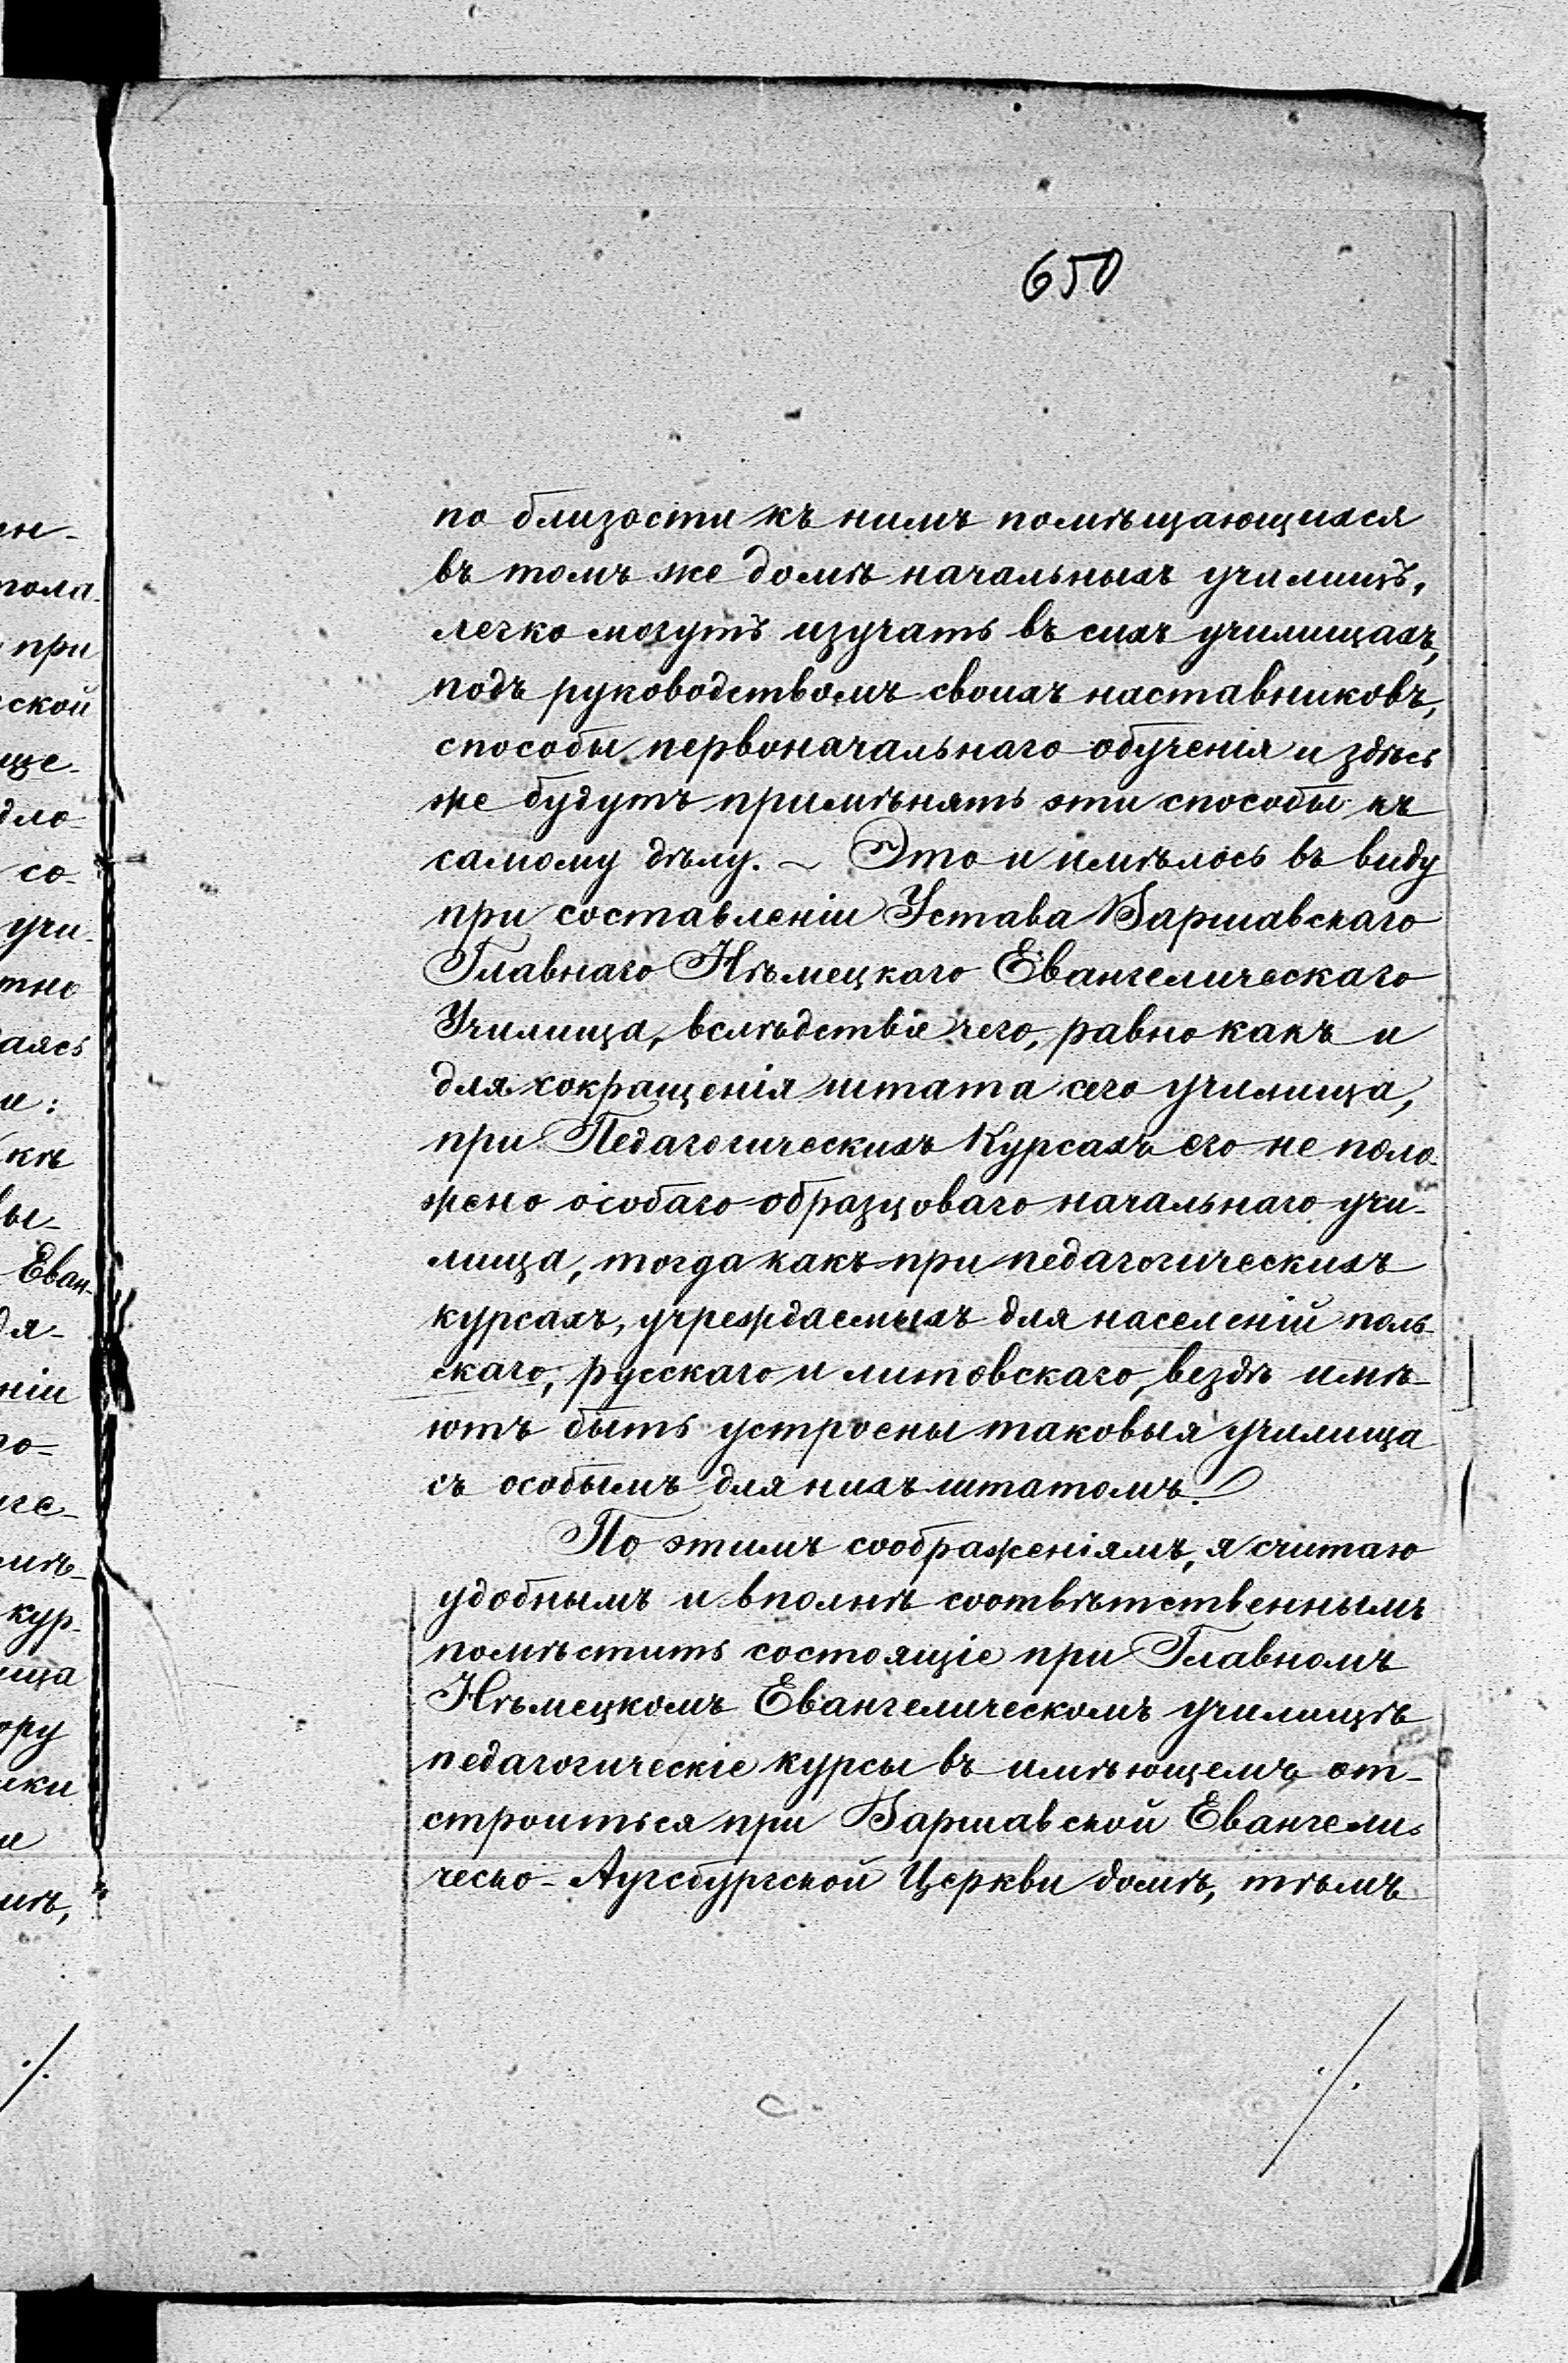 650
по близости къ нимъ помѣщающихся
въ томъ же домѣ начальныхъ училищъ,
легко могутъ изучать въ сихъ училищахъ,
подъ руководствомъ своихъ наставниковъ,
способы первоначальнаго обученія и здѣсь
же будутъ примѣнять эти способы къ
самому дѣлу. — Это и имѣлось въ виду
при составленіи Устава Варшавскаго
Главнаго Нѣмецкаго Евангелическаго
Училища, вслѣдствіе чего, равно какъ и
для сокращенія штата сего училища,
при Педагогическихъ Курсахъ его не поло-
жено особаго образцоваго начальнаго учи-
лища, тогда какъ при педагогическихъ
курсахъ, учреждаемыхъ для населеній поль-
скаго, русскаго и литовскаго, вездѣ имѣ-
ютъ быть устроены таковыя училища
съ особымъ для нихъ штатомъ.
По этимъ соображеніямъ, я считаю
удобнымъ и вполнѣ соотвѣтственнымъ
помѣстить состоящіе при Главномъ
Нѣмецкомъ Евангелическомъ училищѣ
педагогическіе курсы въ имѣющемъ от-
строиться при Варшавской Евангели-
ческо-Аугсбургской Церкви домѣ, тѣмъ
./.